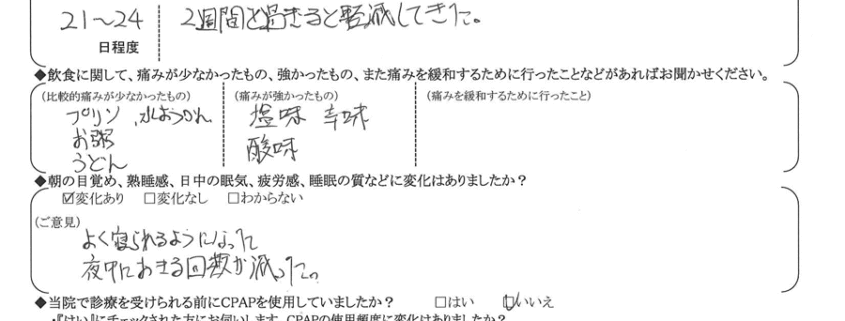 21～24
日程度
2週間を過ぎると軽減してきた。
◆飲食に関して、痛みが少なかったもの、強かったもの、また痛みを緩和するために行ったことなどがあればお聞かせください。
(比較的痛みが少なかったもの)
プリン、水ようかん
お粥
うどん
(痛みが強かったもの)
塩味 辛味
酸味
(痛みを緩和するために行ったこと)
◆朝の目覚め、熟睡感、日中の眠気、疲労感、睡眠の質などに変化はありましたか？
☑変化あり □変化なし □わからない
(ご意見)
よく寝られるようになった
夜中におきる回数が減った。
◆当院で診療を受けられる前にCPAPを使用していましたか？ □はい ☑いいえ
・『はい』にチェックされた方にお伺いします。CPAPの使用頻度に変化はありましたか？